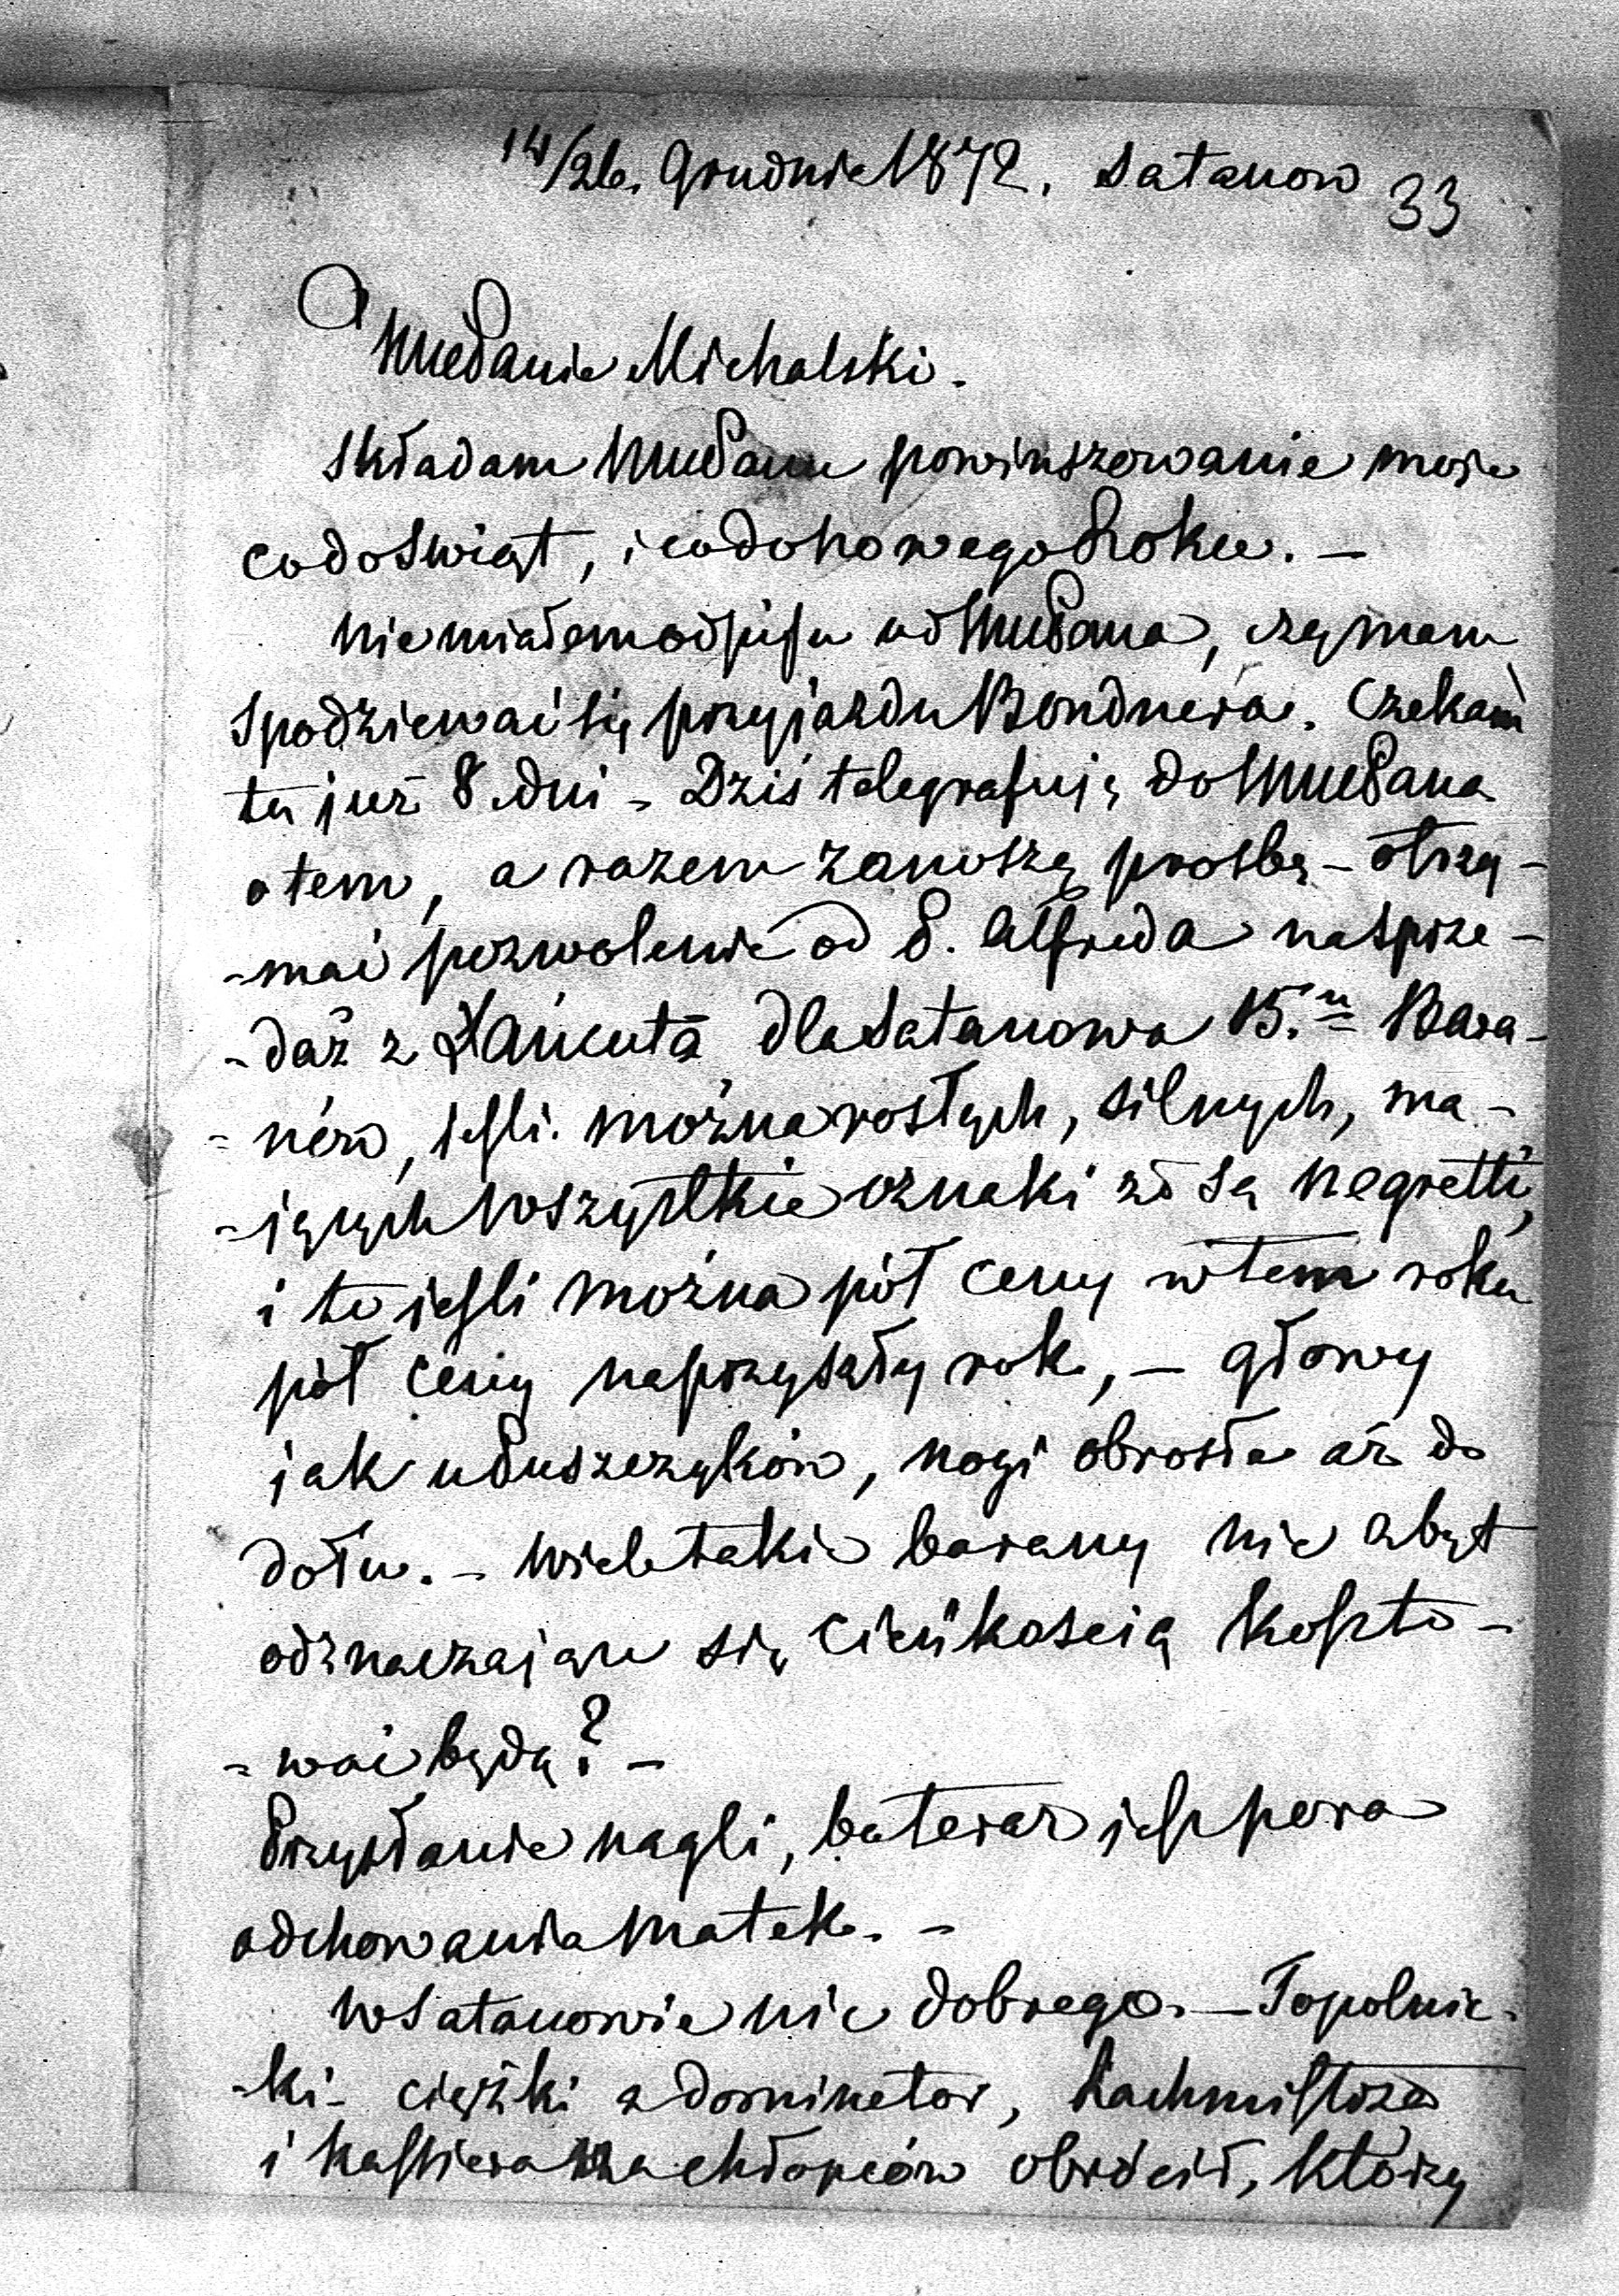 14/26. Grudnia 1872. Satanow 33
WMPanie Michalski.
Składam WMPanu powinszowanie moje
co do Swiąt, i co do Nowego Roku. —
Nie miałem odpisu od WMPana, czy mam
spodziewać się przyjazdu Bondnera. Czekam
tu już 8 dni - Dziś telegrafuję do WMPana
o tem, a razem zanoszę prosbę - otrzy-
-mać pozwolenie od P. Alfreda na sprze-
-daż z Łańcuta dla Satanowa 15.u Bara-
-nów, jesli można rosłych, silnych, ma-
-jących wszystkie oznaki że są negretti,
i to jesli można pół ceny w tem roku
pół ceny na przyszły rok, — głowy
jak u Duszczyków, nogi obrosłe aż do
dołu. - Wiele takie barany nie zbyt
odznaczające się cieńkoscią koszto-
-wać będą? —
Przysłanie nagli, bo teraz jest pora
odchowania Matek. —
W Satanowie nic dobrego. — Topolnic-
-ki - ciężki administrator, Rachmistrza
i Kassiera na chłopców obrócił, którzy